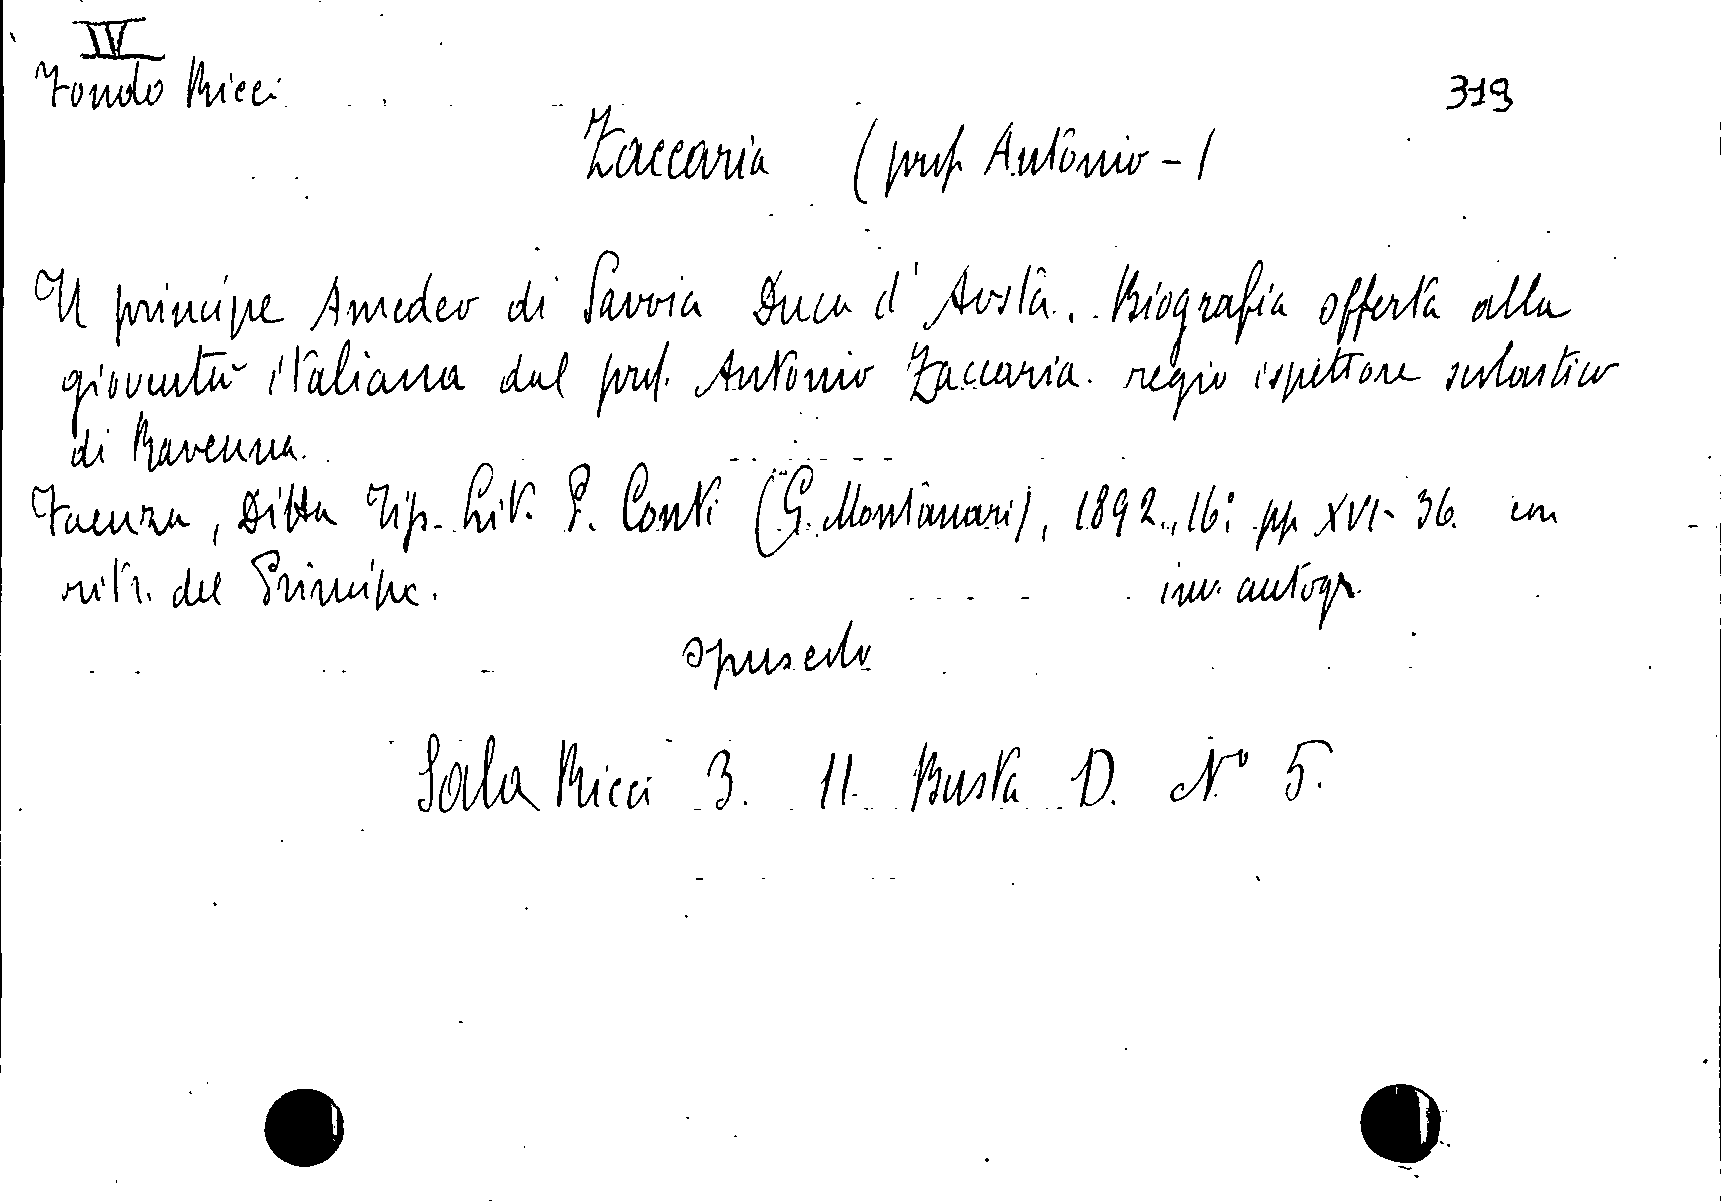 IV
Fondo Ricci
319
Zaccaria (prof. Antonio - )
Il principe Amedeo di Savoia Duca d'Aosta. Biografia offerta alla
gioventù italiana dal prof. Antonio Zaccaria regio ispettore scolastico
di Ravenna.
Faenza, Ditta Tip. Lit. P. Conti (G. Montanari), 1892., 16° pp XVI-36. con
ritr. del Principe.
inv. autogr.
opuscolo
Sala Ricci 3. 11. Busta D. N° 5.